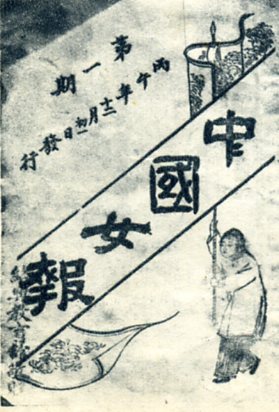 第一期
丙午年十二月初一日發行
中國女報